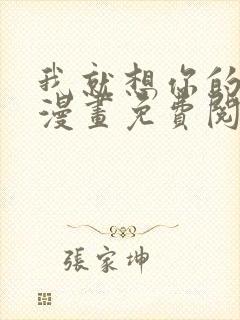 我就想你的
漫畫免費閱
張家坤